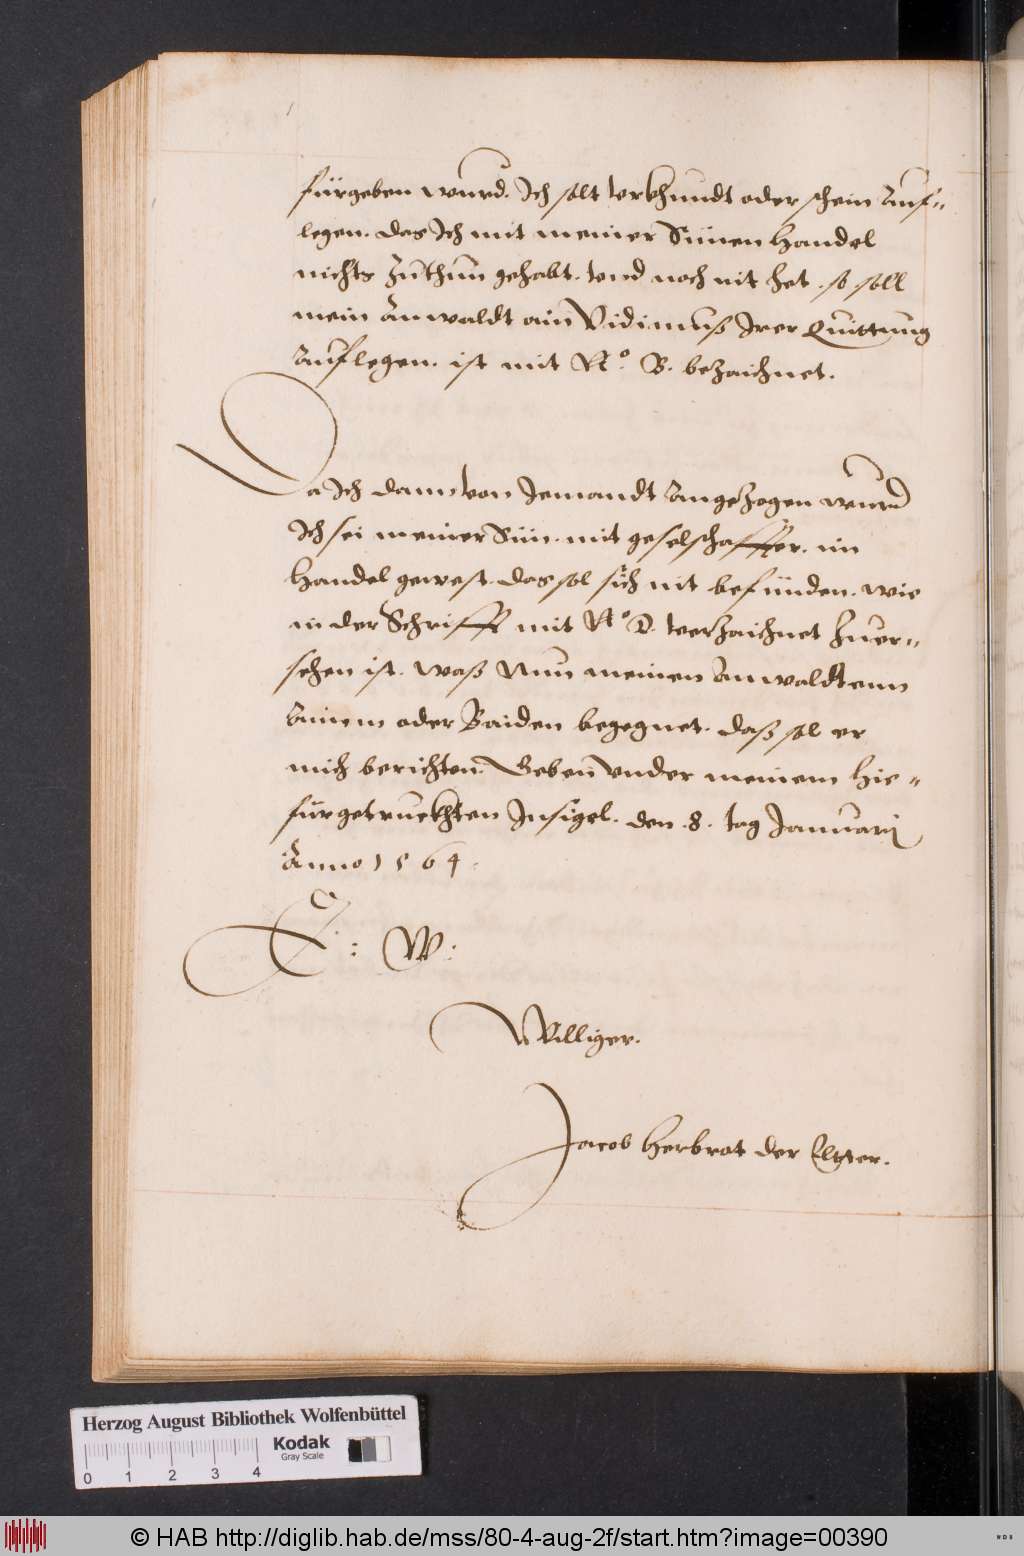 fürgeben wurd. Ich solt urkhundt oder schein auf=
legen. das Ich mit meiner Sünen handel
nichts zuthun gehabt. und noch nit het. so soll
mein Anwaldt ain Vidimuß Irer Quittung
auflegen. ist mit N.º B. bezaichnet.
Da Ich dann von Jemandt angezogen wurd
Ich sei meiner Sün. mit geselschaffter. im
handel gewest. das sol sich nit befünden. wie
in der Schrifft mit N.º D. verzaichnet zuer=
sehen ist. waß Nun meinen Anwaldten
Ainem oder Baiden begegnet. daß sol er
mich berichten. Geben under meinem hie=
fürgetruckhten Insigel. den .8. tag Januarij
Anno 1564.
E: W:
Williger.
Jacob Herbrot der Elter.
Herzog August Bibliothek Wolfenbüttel
Kodak
Gray Scale
0 1 2 3 4
© HAB http://diglib.hab.de/mss/80-4-aug-2f/start.htm?image=00390